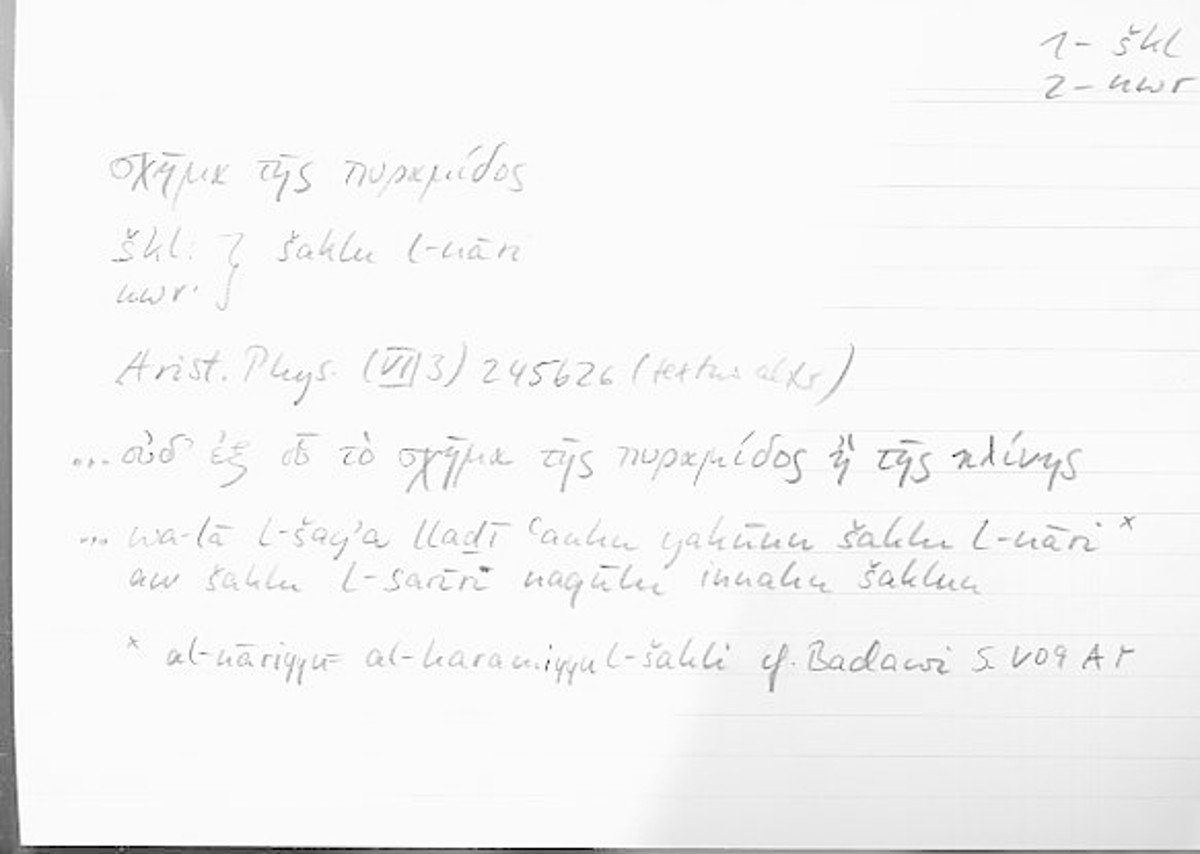 1- škl
2- nwr
σχῆμα τῆς πυραμίδος
škl: } šaklu l-nāri
nwr:
Arist. Phys. (VII 3) 245b26 (textus alter)
... οὐδ' ἐξ οὗ τὸ σχῆμα τῆς πυραμίδος ἢ τῆς κλίνης
... wa-lā l-šay'a lladī ʿanhu yakūnu šaklu l-nāri x
aw šaklu l-sarīri naqūlu innahu šaklun
x al-nāriyyu = al-haramiyyu l-šakli cf. Badawi S.